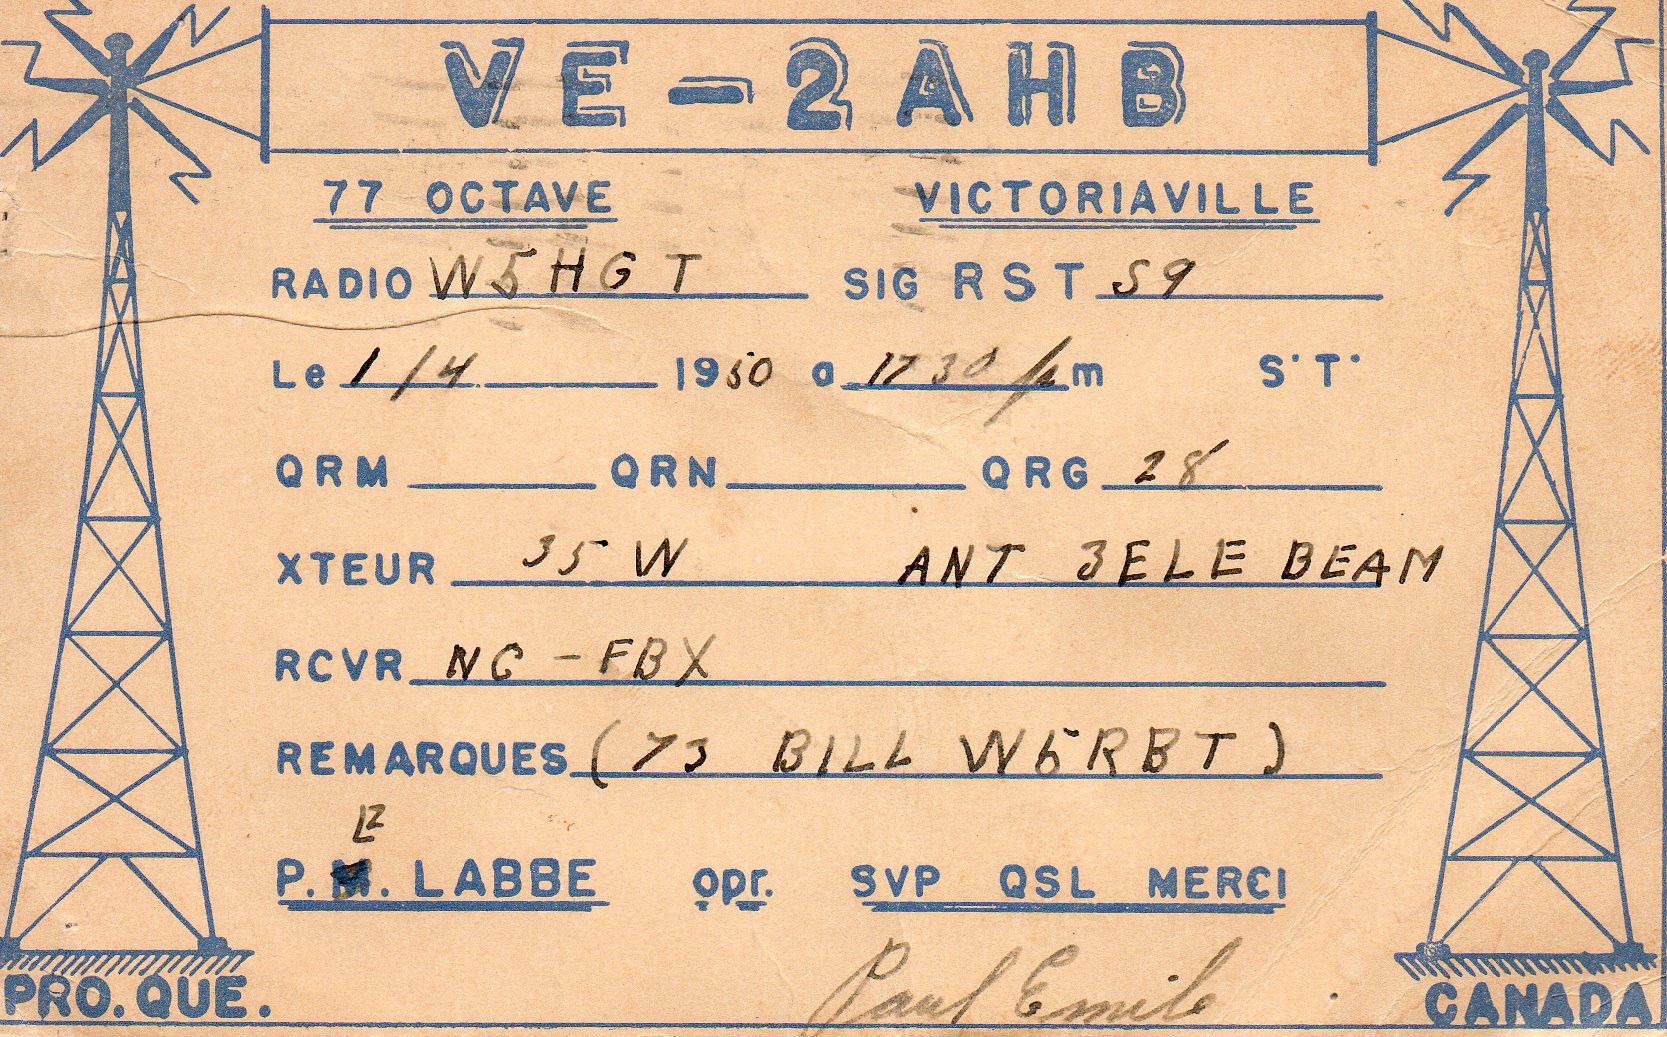 VE-2AHB
77 OCTAVE VICTORIAVILLE
RADIO W5HGT SIG RST 59
Le 1/4 1950 a 1730 pm S.T.
QRM QRN QRG 28
XTEUR 35 W ANT 3ELE BEAM
RCVR NC-FBX
REMARQUES (73 BILL W5RBT)
E
P.M. LABBE opr. SVP QSL MERCI
Paul Emile
PRO. QUE. CANADA